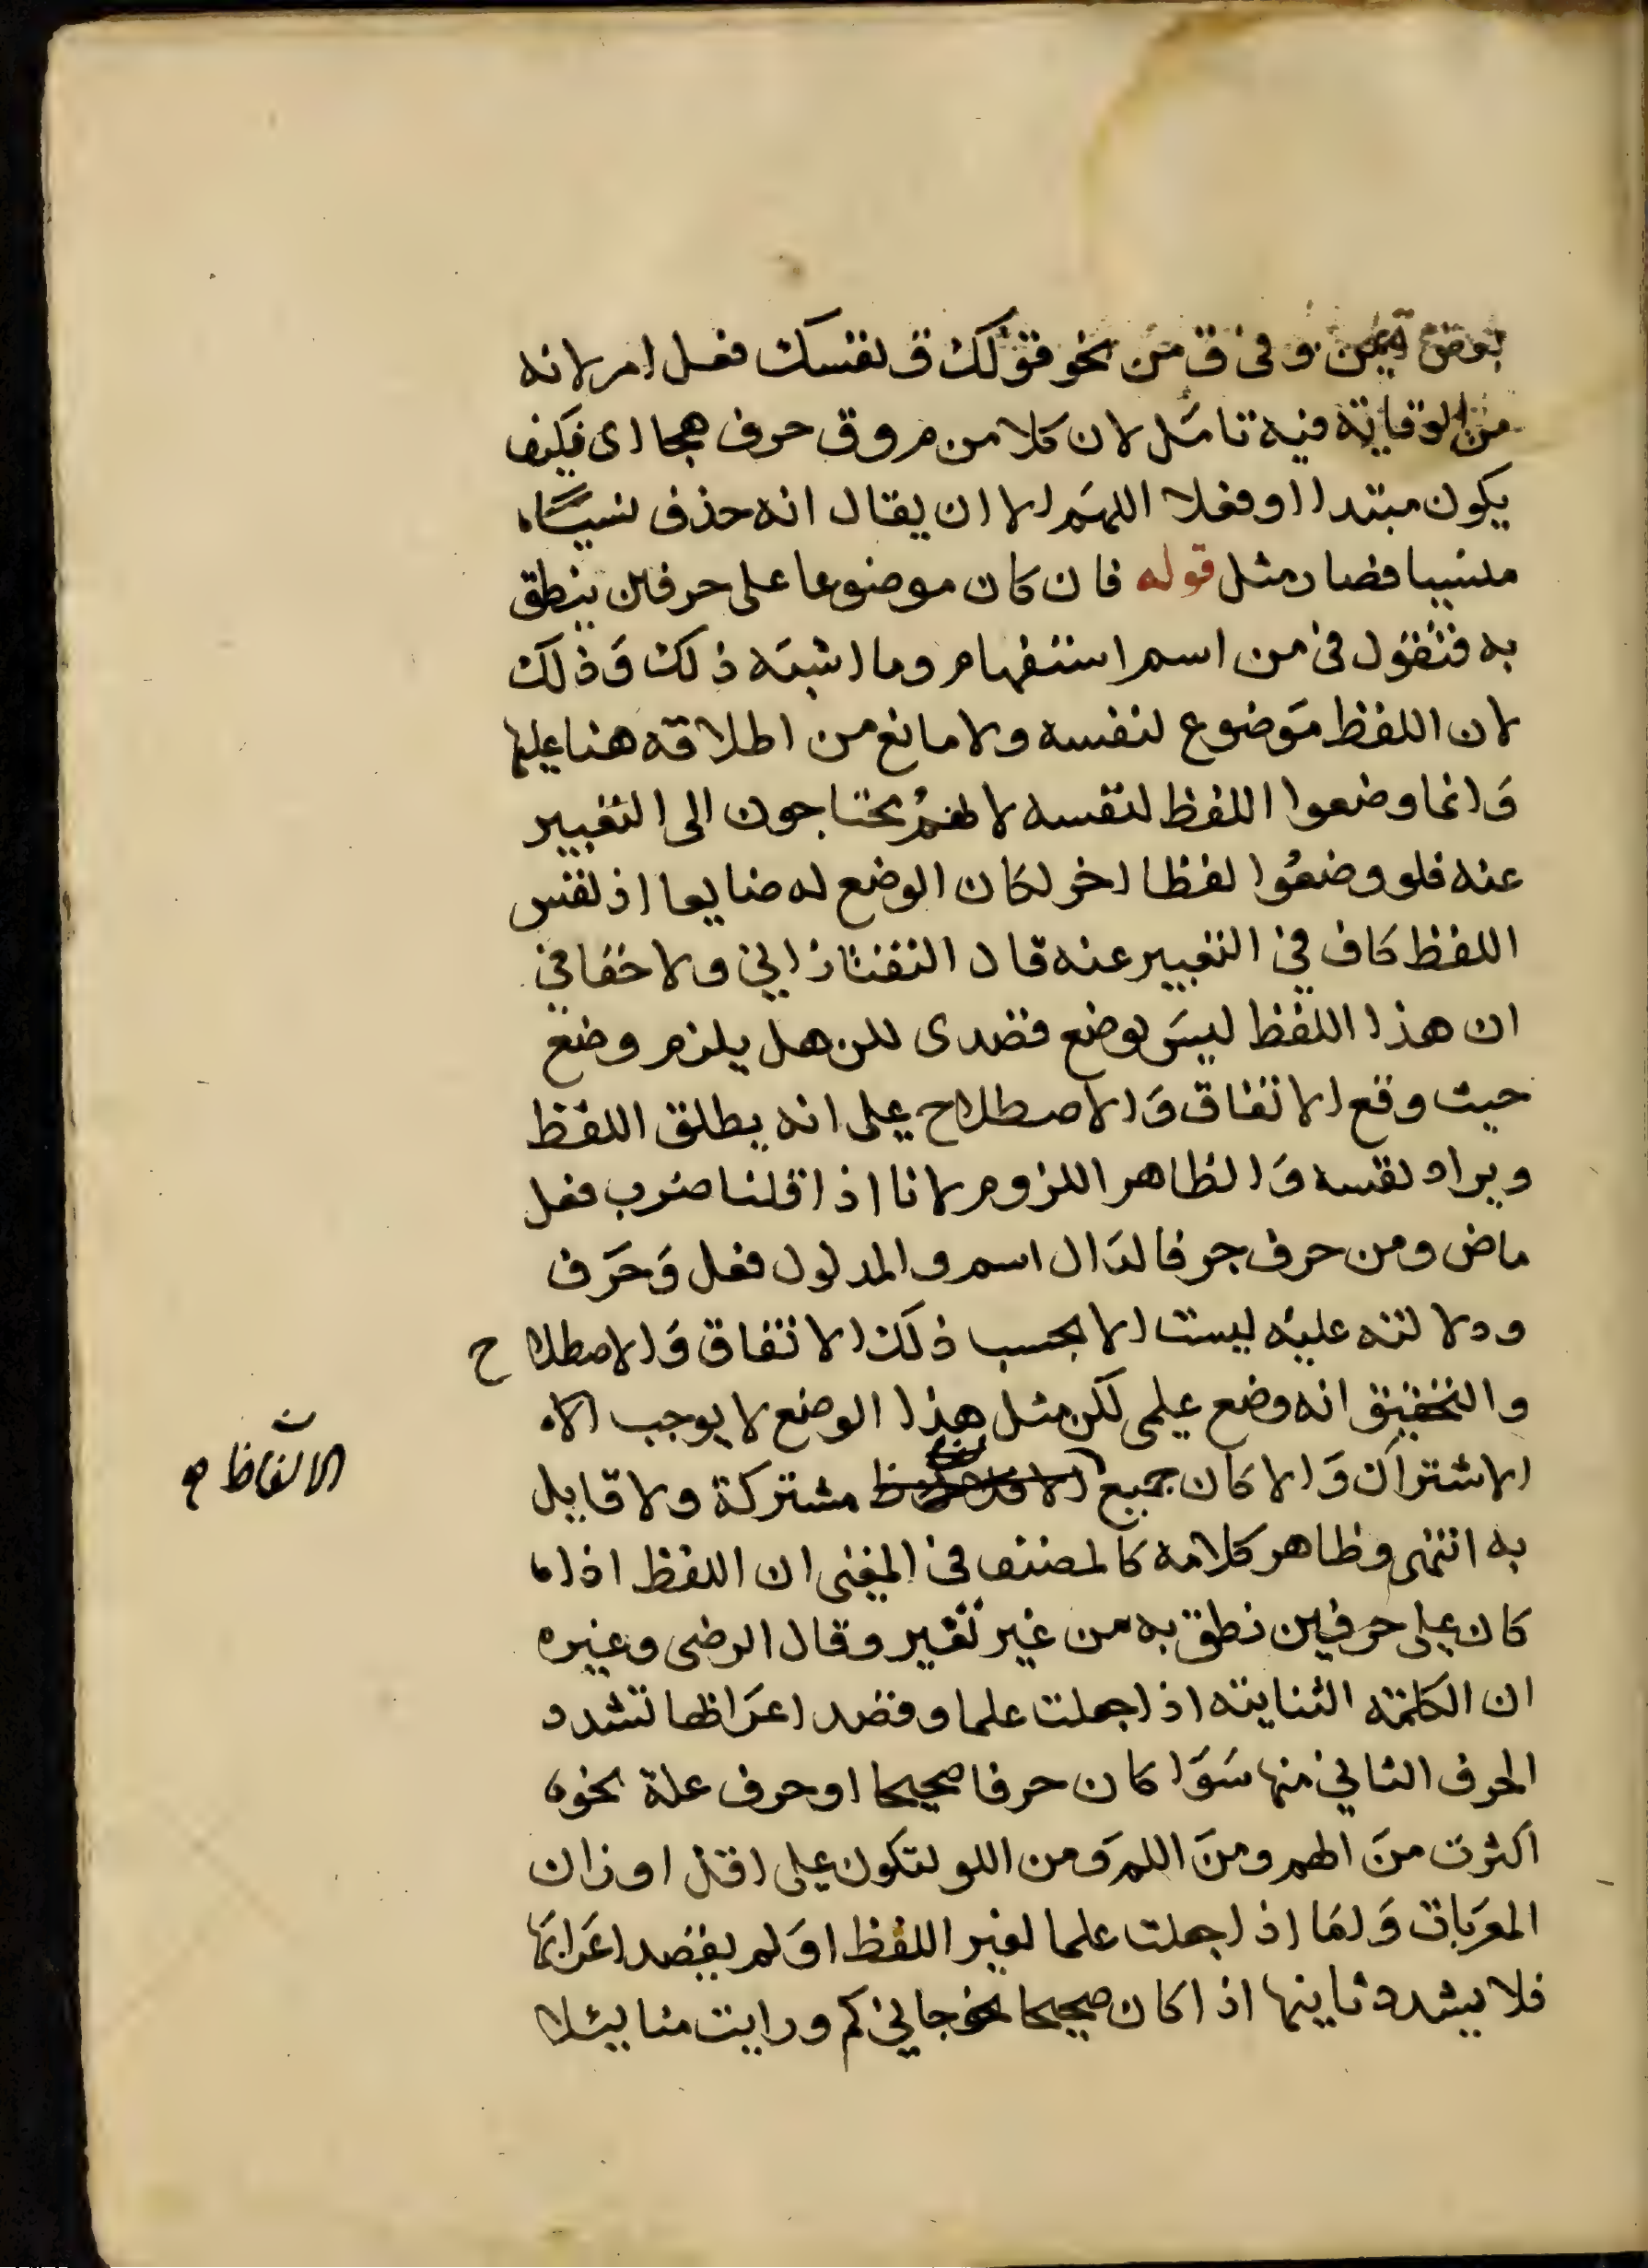 بعض ايمن وفى ق من نحو قولك ق نفسك فعل امر لانه
من الوقاية فيه تامل لان كلا من م و ق حرف هجا اى فكيف
يكون مبتدا او فعلا اللهم الا ان يقال انه حذف نسيا
منسيا فصار مثل قوله فان كان موضوعا على حرفين ينطق
به فتقول فى من اسم استفهام وما اشبه ذلك وذلك
لان اللفظ موضوع لنفسه ولا مانع من اطلاقه هنا عليها
وانما وضعوا اللفظ لنفسه لانهم يحتاجون الى التعبير
عنه فلو وضعوا لفظا اخر لكان الوضع له ضايعا اذ نفس
اللفظ كاف في التعبير عنه قال التفتازاني ولا خفا في
ان هذا اللفظ ليس بوضع قصدى لكن هل يلزم وضع
حيث وقع الاتفاق والاصطلاح على انه يطلق اللفظ
ويراد نفسه والظاهر اللزوم لانا اذا قلنا ضرب فعل
ماض ومن حرف جر فالدال اسم والمدلول فعل وحرف
ودلالته عليه ليست الا بحسب ذلك الاتفاق والاصطلاح
والتحقيق انه وضع علمى لكن مثل هذا الوضع لا يوجب الا
الاشتراك والا كان جميع مشتركة ولا قايل
الالفاظ
به انتهى وظاهر كلامه كالمصنف فى المغنى ان اللفظ اذا
كان على حرفين نطق به من غير تغير وقال الرضى وغيره
ان الكلمة الثنايية اذا جعلت علما وقصد اعرابها تشدد
الحرف الثاني منها سوا كان حرفا صحيحا او حرف علة نحو
اكثرت من الهم ومن اللم ومن اللو لتكون على اقل اوزان
المعربات ولما اذا جعلت علما لغير اللفظ او لم يقصد اعرابها
فلا يشدد ثانيها اذا كان صحيحا نحو جاني كم ورايت منا ليلا